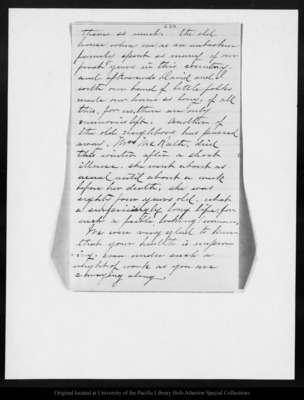 them so much. The old
house when we as an unbroken
family spent so many of our
first years in this country,
and afterwards David and I
with our band of little folks
made our home so long, of all
this, for us there are only
memories left. Another of
the old neighbors has passed
away, Mrs McRath, died
this winter after a short
illness. She went about as
usual until about a week
before her death, she was
eighty four years old. what
a surprisingly long life for
such a feeble looking woman.
We are very glad to know
that your health is improv
-ing, even under such a
weight of work as you are
carrying along.
Original located at University of the Pacific Library Holt-Atherton Special Collections